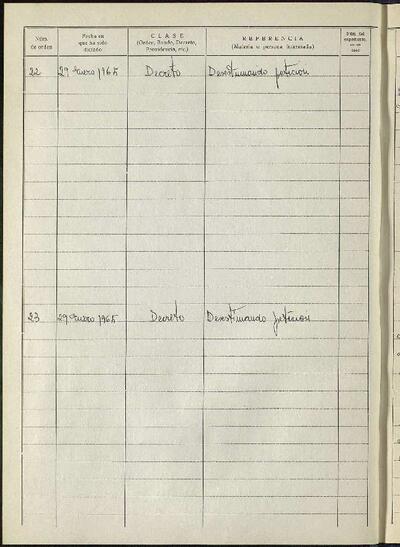 Núm. de orden
Fecha en que ha sido dictado
CLASE (Orden, Bando, Decreto, Providencia, etc.)
REFERENCIA (Materia o persona interesada)
Núm. del expediente
22 29 Enero 1965 Decreto Desestimando petición
23 29 Enero 1965 Decreto Desestimando petición